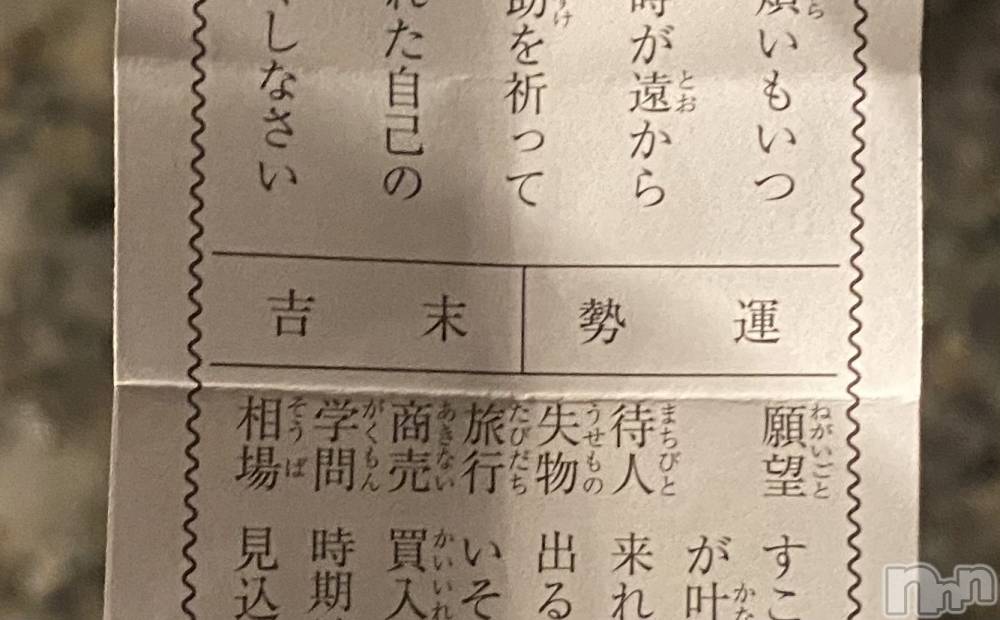 いもいつ
時が遠から
を祈って
れた自己の
しなさい
運勢
末吉
願望 すこ
が叶
待人 来れ
失物 出る
旅行 いそ
商売 買入
学問 時期
相場 見込